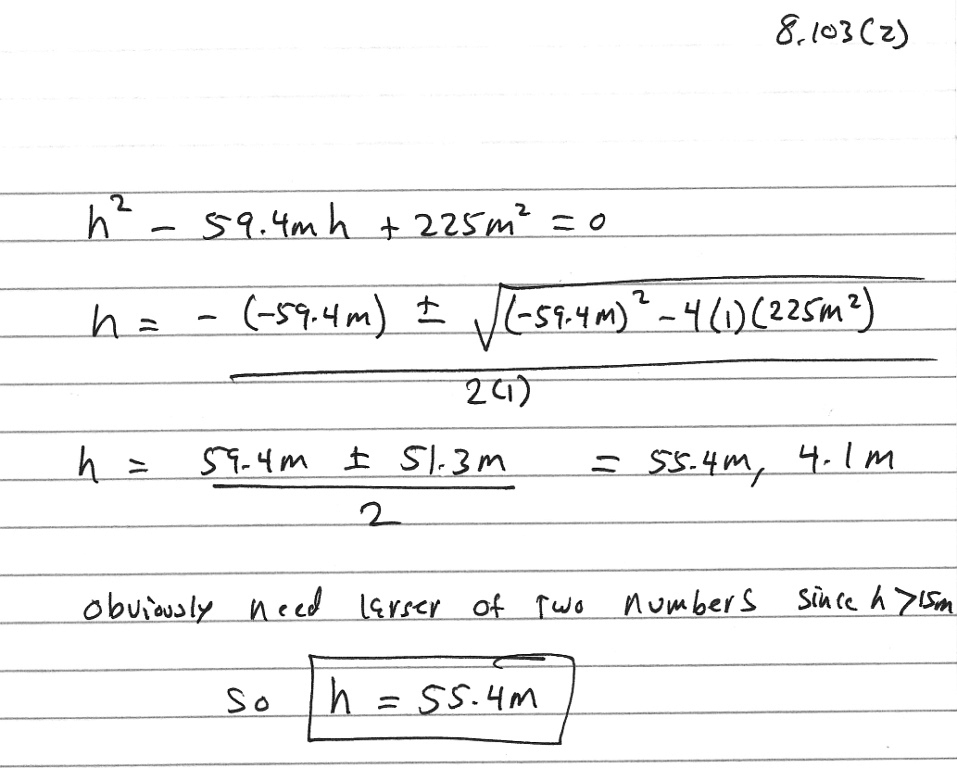 8.103(2)
h² - 59.4m h + 225m² = 0
h = - (-59.4m) ± √(-59.4m)² - 4(1)(225m²)
2(1)
h = 59.4m ± 51.3m = 55.4m, 4.1m
2
obviously need larger of two numbers since h >15m
so h = 55.4m